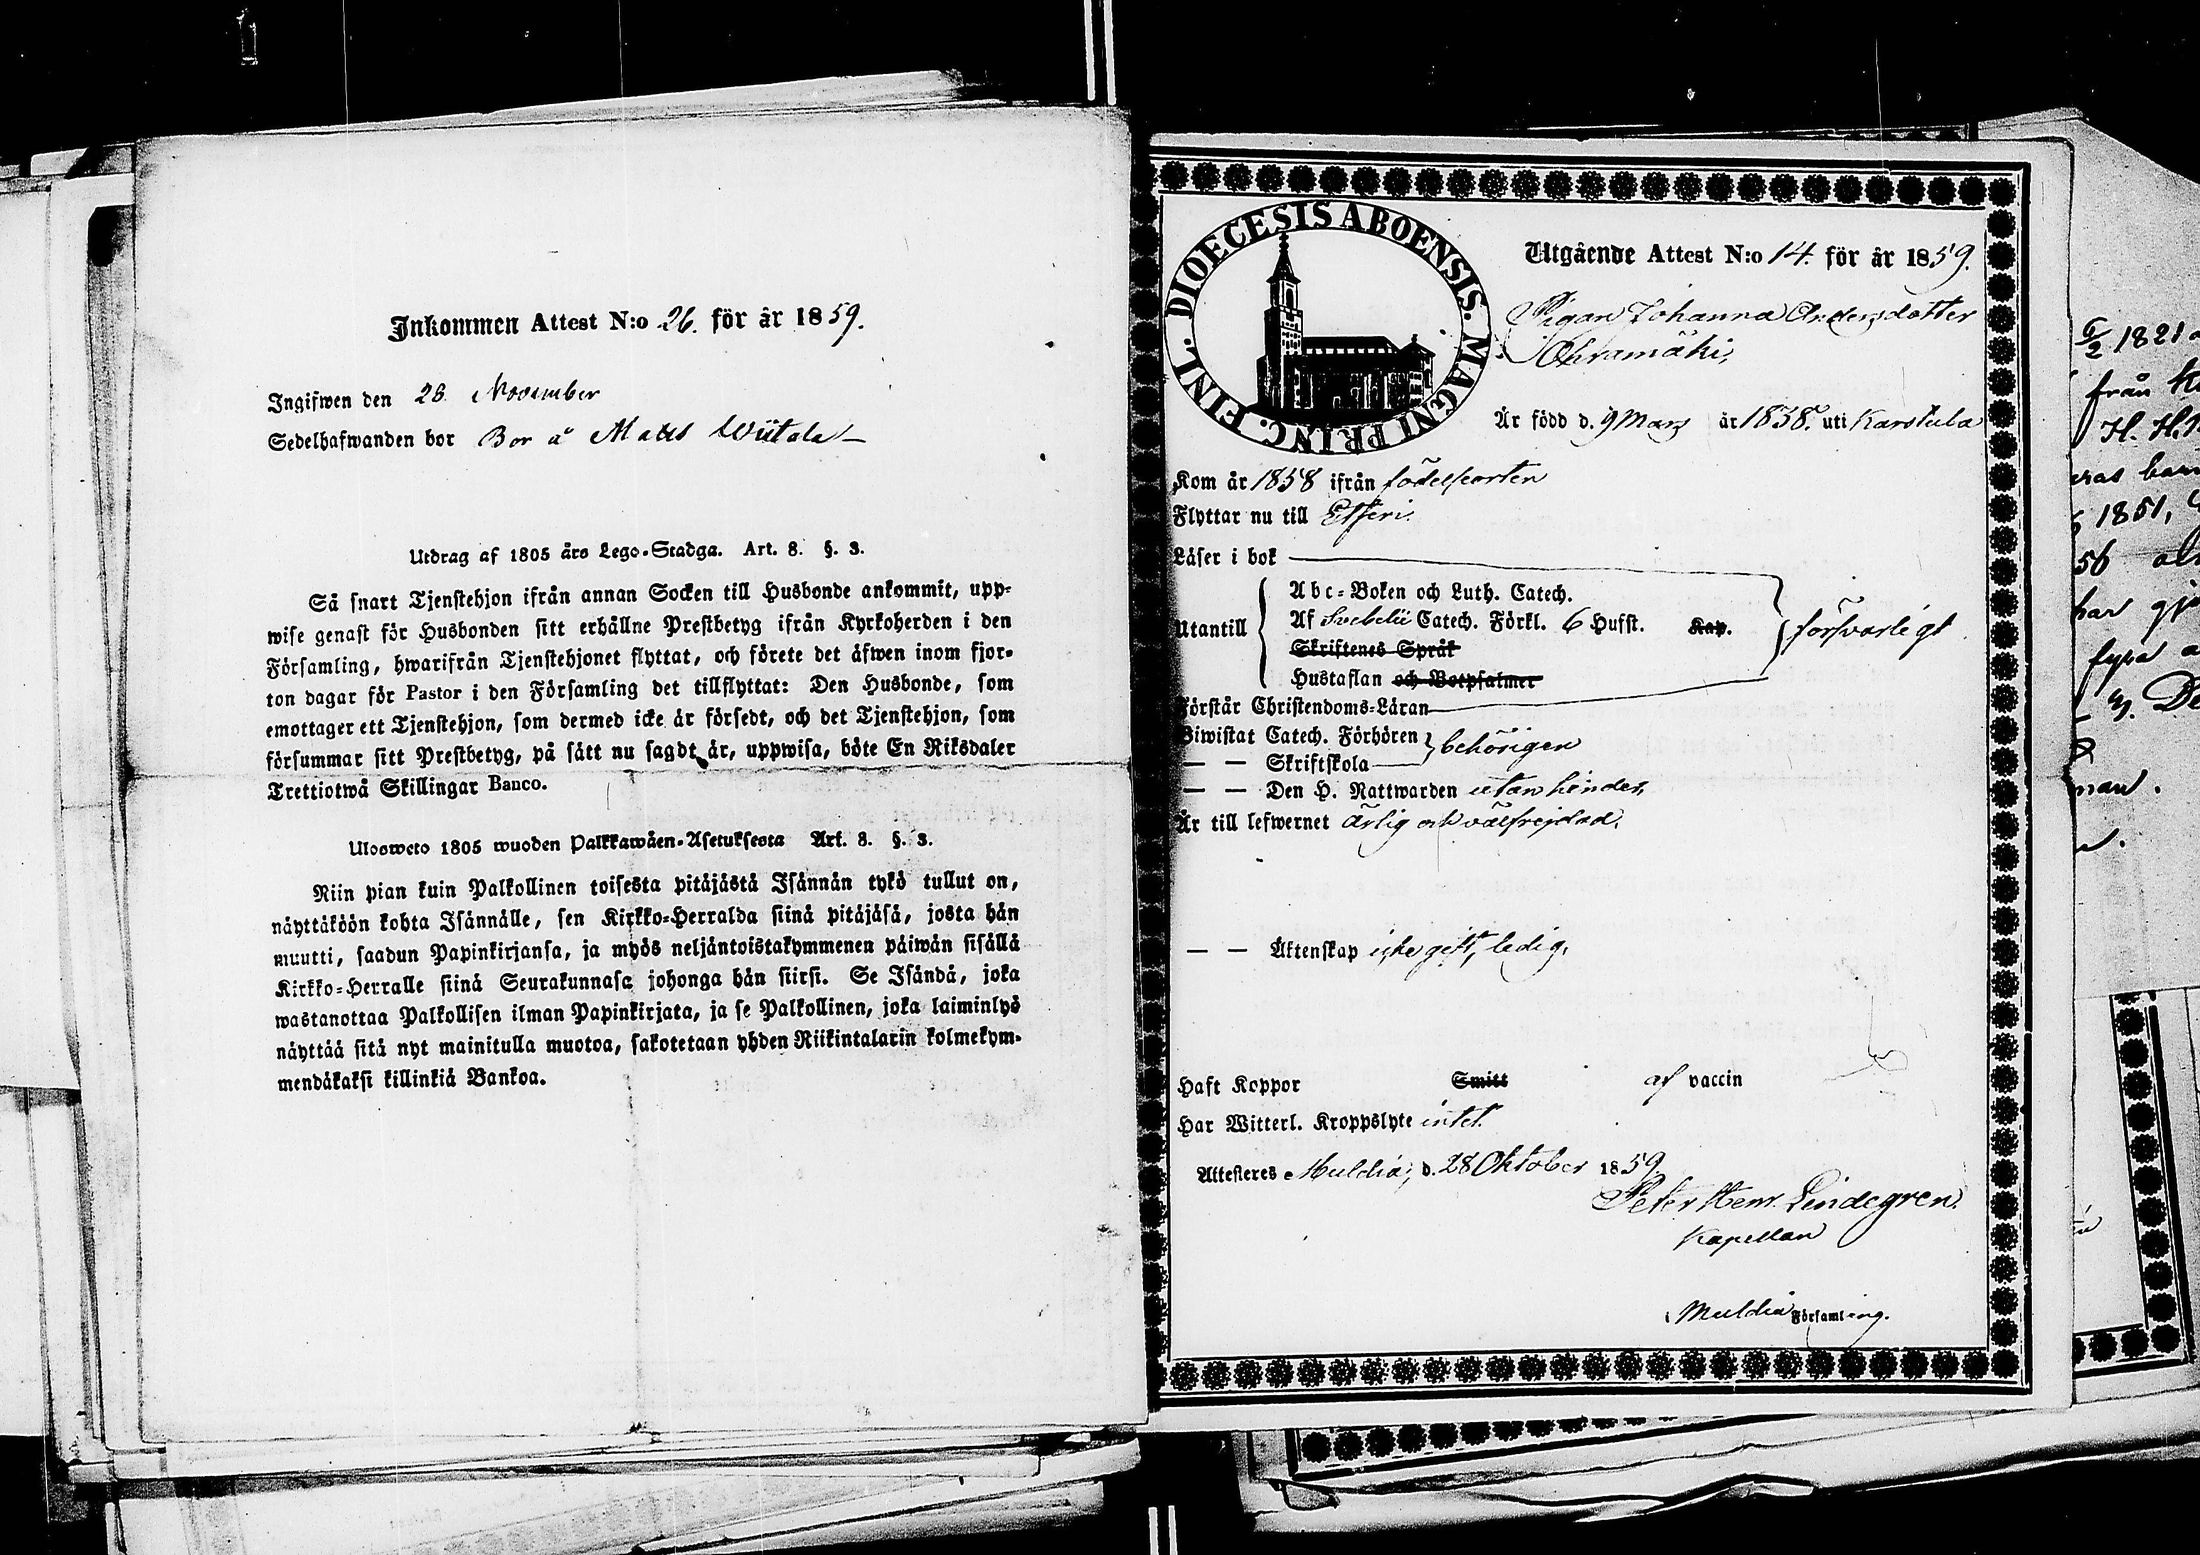 Inkommen Attest N:o 26. för år 1859.
Ingifwen den 26. November
Sedelhafwanden bor Bor å Matts Wiitala
Utdrag af 1805 års Lego-Stadga. Art. 8. §. 3.
Så snart Tjenstehjon ifrån annan Socken till Husbonde ankommit, upp-
wise genast för Husbonden sitt erhållne Prestbetyg ifrån Kyrkoherden i den
Församling, hwarifrån Tjenstehjonet flyttat, och förete det äfwen inom fjor-
ton dagar för Pastor i den Församling det tillflyttat: Den Husbonde, som
emottager ett Tjenstehjon, som dermed icke är försedt, och det Tjenstehjon, som
försummar sitt Prestbetyg, på sätt nu sagdt är, uppwisa, böte En Riksdaler
Trettiotwå Skillingar Banco.
Ulosweto 1805 wuoden Palkkawäen-Asetuksesta Art. 8. §. 3.
Niin pian kuin Palkollinen toisesta pitäjästä Isännän tykö tullut on,
näyttäköön kohta Isännälle, sen Kirkko-Herralda siinä pitäjäsä, josta hän
muutti, saadun Papinkirjansa, ja myös neljäntoistakymmenen päiwän sisällä
Kirkko-Herralle siinä Seurakunnasa johonga hän siirsi. Se Isändä, joka
wastanottaa Palkollisen ilman Papinkirjata, ja se Palkollinen, joka laiminlyö
näyttää sitä nyt mainitulla muotoa, sakotetaan yhden Riikintalarin kolmekym-
mendäkaksi killinkiä Bankoa.
DIOECESIS ABOENSIS. MAGNI PRINC. FINL.
Utgående Attest N:o 14. för år 1859.
Pigan Johanna Andersdotter
Ohramäki,
Är född d. 9 Mars år 1838. uti Karstula
Kom år 1858 ifrån födelseorten
Flyttar nu till Etseri.
Läser i bok
Utantill
Abc-Boken och Luth. Catech.
Af Svebelii Catech. Förkl. 6 Hufst. Kap.
Skriftenes Språk
Hustaflan och Botpsalmer
försvarligt
Förstår Christendoms-Läran
Biwistat Catech. Förhören
— — Skriftskola
behörigen
— — Den H. Nattwarden utan hinder,
Är till lefwernet ärlig och välfrejdad.
— — Äktenskap icke gift, ledig,
Haft Koppor Smitt af vaccin
Har Witterl. Kroppslyte intet.
Attesteres Muldia, d. 28 Oktober 1859.
Peter Henr. Lindegren.
Kapellan
i Muldia Församling.
1821
från
H. H.
1851,
56
har
fyra